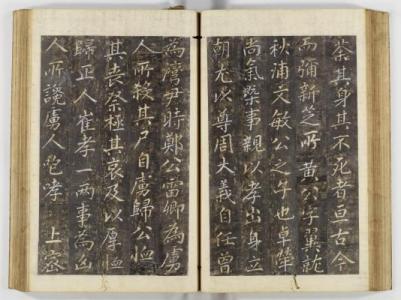 荼其身其不死者亘古今
而彌新芝所黄公字翼就
秋浦文敏公之子也卓犖
尚氣槩事親以孝出身立
朝尤以尊周大義自任曽
為灣尹時鄭公雷卿為虜
人所殺其尸自虜歸公恤
其喪祭極其哀及以厚恤
歸正人崔孝一兩事為凶
人所讒虜人咆哮 上密